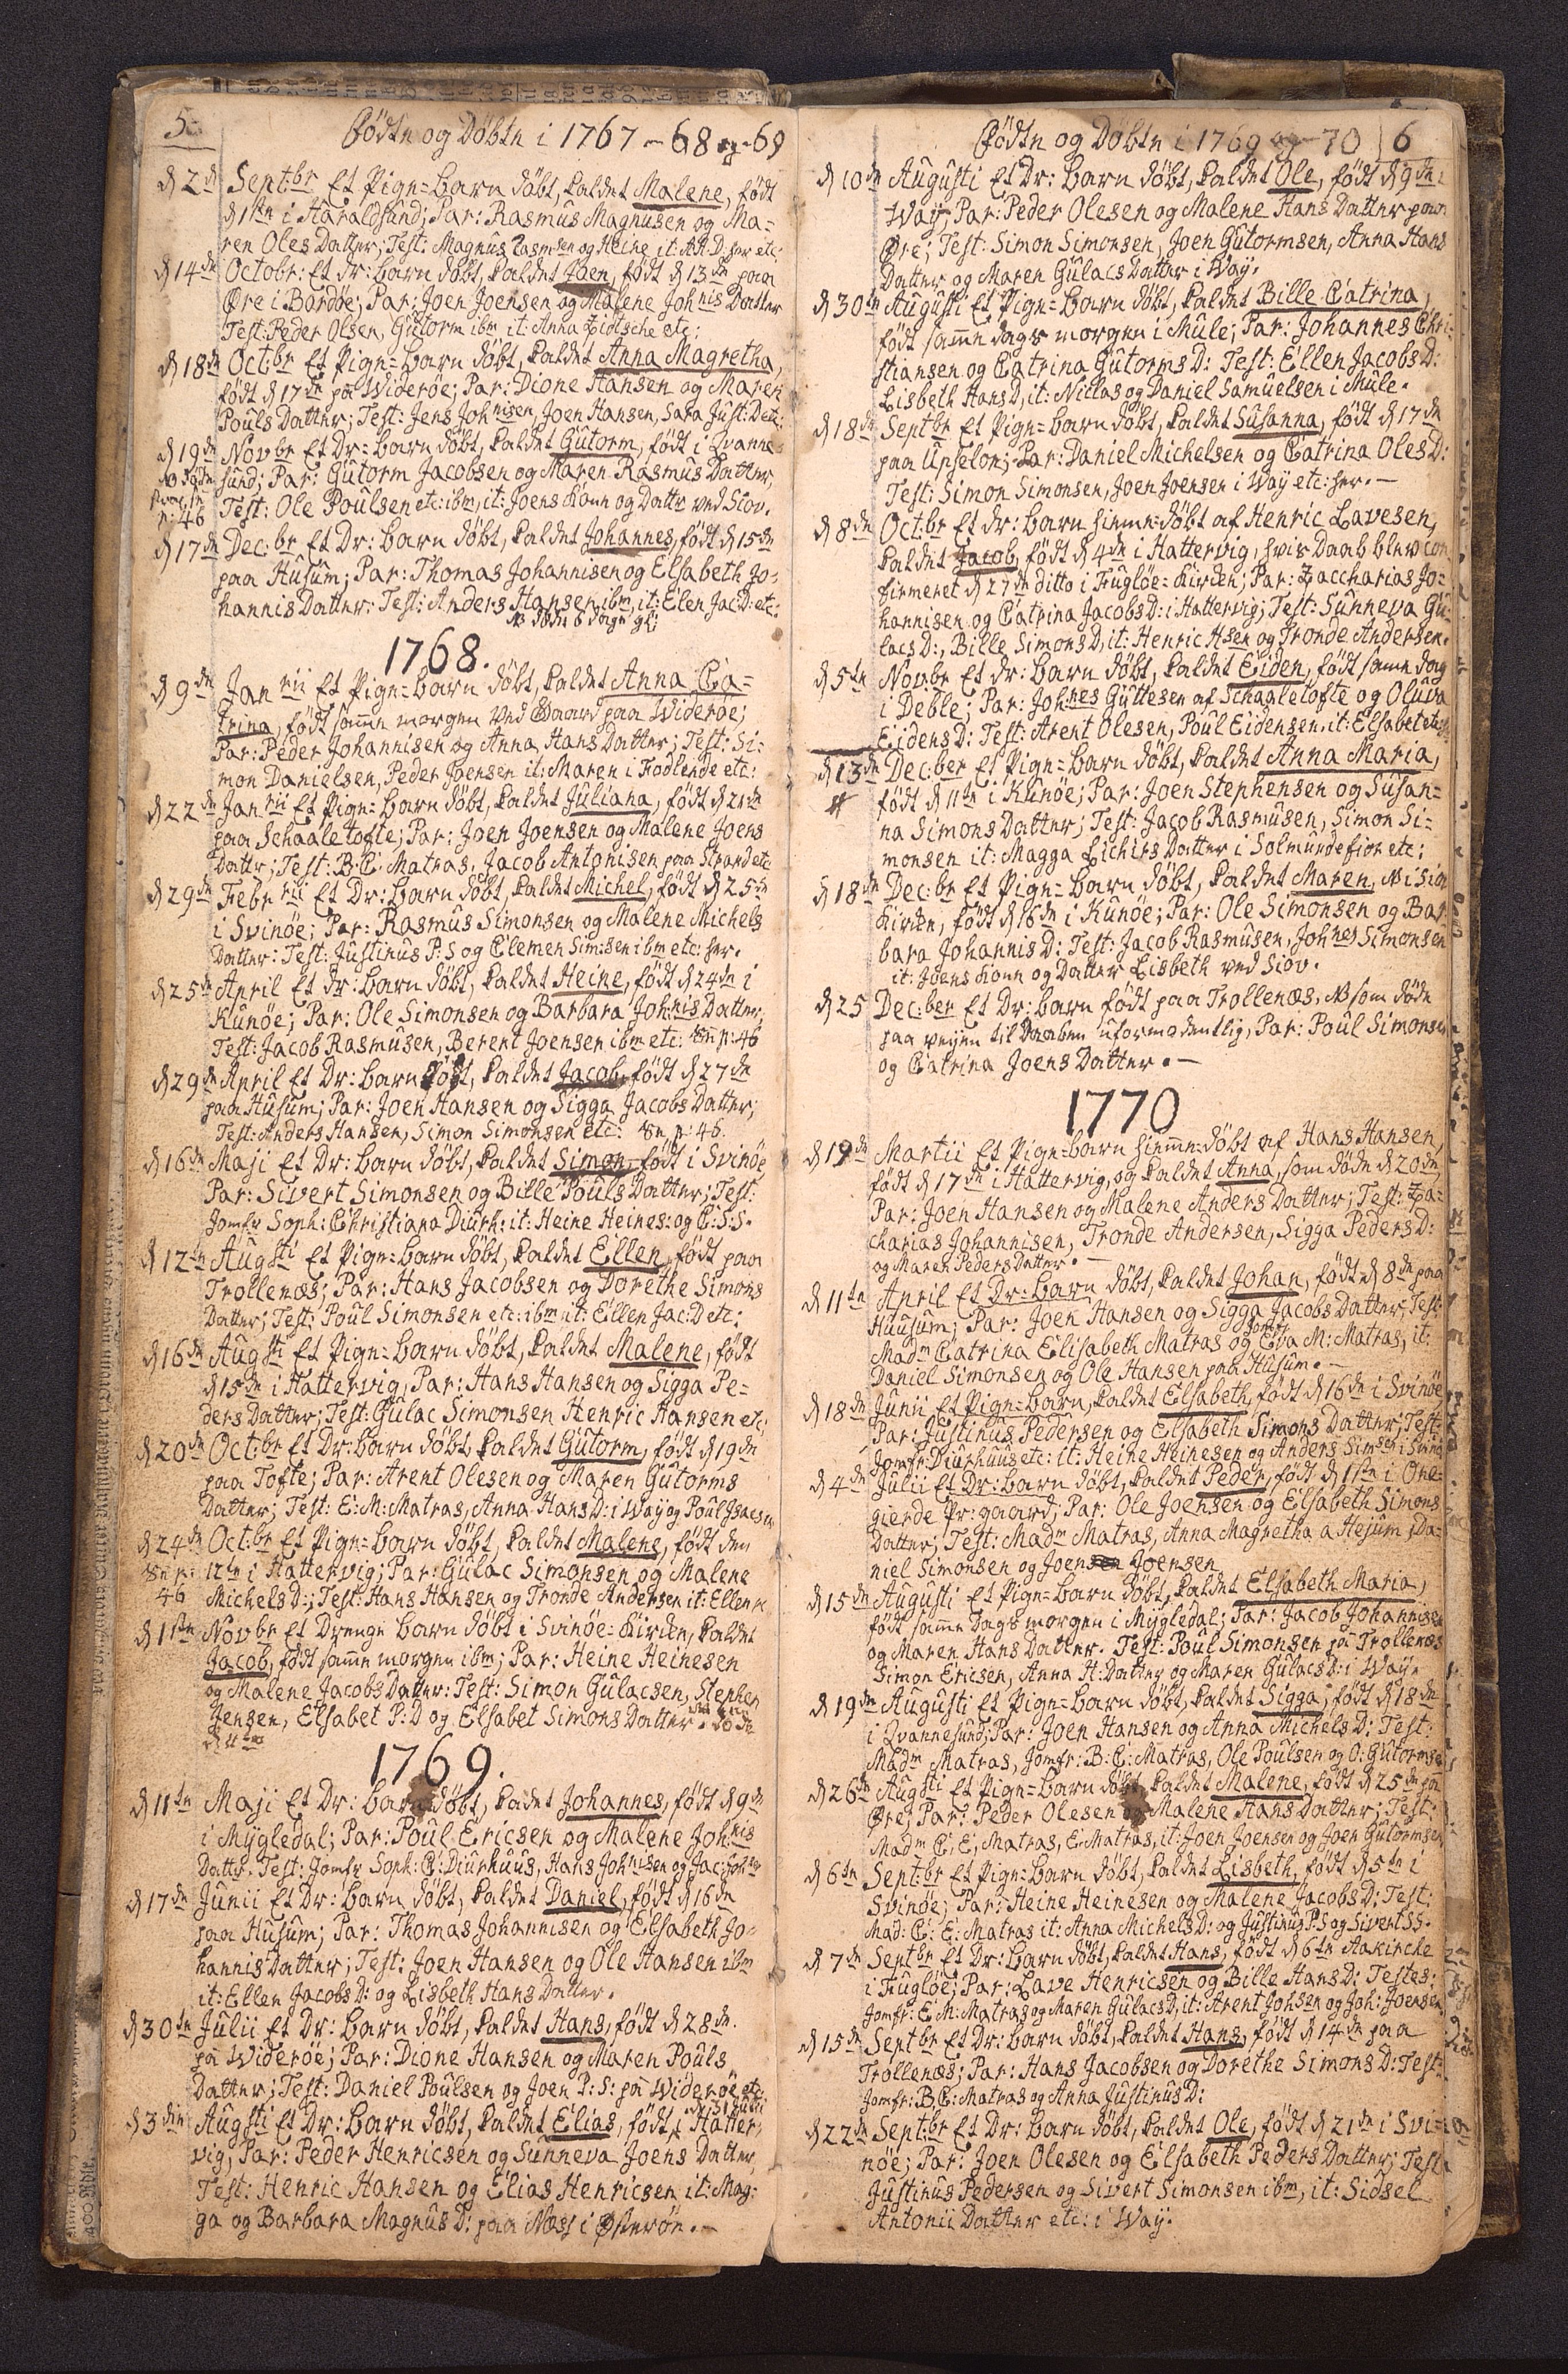 5
Födte og Döbte i 1767 - 68 og - 69
d 2de Septbr Et Pige=barn döbt, kaldet Malene, födt
d 1ste i Haraldsund; Par: Rasmus Magnusen og Ma=
ren Oles Datter; Test: Magnus Rasmsen og Heine, it: A.H.D: her etc:
d 14de Octobr: Et Dr: barn döbt, kaldet Joen, födt d 13de paa
Øre i Bordöe; Par: Joen Joensen og Malene Johnis Datter
Test: Peder Olsen, Gutorm ibm it: Anna Zidtsche etc:
d 18de Octbr Et Pige=barn döbt, kaldet Anna Magretha,
födt d 17de på Wideröe; Par: Dione Hansen og Maren
Pouls Datter; Test: Jens Johnisen, Joen Hansen, Sara Just: D etc:
d 19de Novbr Et Dr=barn döbt, kaldet Gutorm, födt i Qvanne
sund; Par: Gutorm Jacobsen og Maren Rasmus Datter,
p: 46 Test: Ole Poulsen etc: ibm, it: Joens Kone og Dattr ved Siov.
d 17de Dec:br Et Dr: barn döbt, kaldet Johannes, födt d 15de
paa Husum; Par: Thomas Johannisen og Elsabeth Jo=
hannis Datter: Test: Anders Hansen ibm, it: Elen Jac:D: etc:
NB döde 6 Dage gl:
1768.
d 9de Janrii Et Pige=barn döbt, kaldet Anna Ca=
trina, födt samme morgen ved Gaard paa Wideröe;
Par: Peder Johannisen og Anna Hans Datter; Test: Si=
mon Danielsen, Peder Joensen it: Maren i Fodlende etc:
d 22de Janrii Et Pige=barn döbt, kaldet Juliana, födt d 21de
paa Schaaletofte; Par: Joen Joensen og Malene Joens
Dattr; Test: B: C: Matras, Jacob Antonisen paa Strand etc
d 29de Febrrii Et Dr: barn döbt, kaldet Michel, födt d 25de
i Svinöe; Par: Rasmus Simonsen og Malene Michels
Datter: Test: Justinus P:S og Clemen Sim:sen ibm etc: her.
d 25de April Et Dr: barn döbt, kaldet Heine, födt d 24de i
Kunöe; Par: Ole Simonsen og Barbara Johnis Datter,
Test: Jacob Rasmusen, Berent Joensen ibm etc: p: 46
d 29de April Et Dr: barn döbt, kaldet Jacob, födt d 27de
paa Husum; Par: Joen Hansen og Sigga Jacobs Datter;
Test: Anders Hansen, Simon Simonsen etc: p: 46.
d 16de Maji Et Dr: barn döbt, kaldet Simon, födt i Svinöe
Par: Sivert Simonsen og Bille Pouls Datter; Test:
Jomfr Soph: Christiana Diurh: it: Heine Heines: og C: S:S.
d 12te Augsti Et Pige=barn döbt, kaldet Ellen, födt paa
Trollenæs; Par: Hans Jacobsen og Dorethe Simons
Datter; Test: Poul Simonsen etc: ibm it: Ellen Jac:D etc:
d 16de Augsti Et Pige=barn döbt, kaldet Malene, födt
d 15de i Hattervig, Par: Hans Hansen og Sigga Pe=
ders Datter; Test: Gulac Simonsen Henric Hansen etc:
d 20de Oct:br Et Dr: barn döbt, kaldet Gutorm, födt d 19de
paa Tofte; Par: Arent Olesen og Maren Gutorms
Datter; Test: E: M: Matras, Anna Hans D: i Way og Poul Isacsen
d 24de Oct:br Et Pige=barn döbt, kaldet Malene, födt den
12te i Hattervig; Par: Gulac Simonsen og Malene
46 Michels D:; Test: Hans Hansen og Tronde Andersen it: Ellen
d 1ste Novbr Et Drenge barn döbt i Svinöe=Kirke, kaldet
Jacob, födt samme morgen ibm; Par: Heine Heinesen
og Malene Jacobs Datter: Test: Simon Gulacsen, Stephen
Jensen, Elsabet P:D og Elsabet Simons Datter. döde
d 4de
1769.
d 11te Maji Et Dr: barn döbt, kadet Johannes, födt d 9de
i Mygledal; Par: Poul Ericsen og Malene Johnis
Dattr. Test: Jomfr Soph: C: Diurhuus, Hans Johnisen og Jac: Johs
d 17de Junii Et Dr: barn döbt, kaldet Daniel, födt d 16de
paa Husum; Par: Thomas Johannisen og Elsabeth Jo=
hannis Datter; Test: Joen Hansen og Ole Hansen ibm
it: Ellen Jacobs D: og Lisbeth Hans Datter.
d 30te Julii Et Dr: barn döbt, kaldet Hans, födt d 28de
på Wideröe; Par: Dione Hansen og Maren Pouls
Datter; Test: Daniel Poulsen og Joen P: S: på Wideröe etc:
d 3die Augsti Et Dr: barn döbt, kaldet Elias, födt d 31 Julii i Hatter=
vig, Par: Peder Henricsen og Sunneva Joens Datter,
Test: Henric Hansen og Elias Henricsen it: Mag=
ga og Barbara Magnus D: paa Næss i Østeröe.
Födte og Döbte i 1769 og - 70 6
d 10de Augusti Et Dr: barn döbt, kaldet Ole, födt d 9de i
Way; Par: Peder Olesen og Malene Hans Datter paa
Øre; Test: Simon Simonsen, Joen Gutormsen, Anna Hans
Datter og Maren Gulacs Datter i Way.
d 30te Augusti Et Pige=barn döbt, kaldet Bille Catrina,
födt samme dags morgen i Mule; Par: Johannes Chri=
stiansen og Catrina Gutorms D: Test: Ellen Jacobs D:
Lisbeth Hans D, it: Niclas og Daniel Samuelsen i Mule.
d 18de Septbr Et Pige=barn döbt, kaldet Susanna, födt d 17de
paa Upselon; Par: Daniel Michelsen og Catrina Oles D:
Test: Simon Simonsen, Joen Joensen i Way etc: her.
d 8de Oct:br Et Dr: barn hiemme=döbt af Henric Lavesen,
kaldet Jacob, födt d 4de i Hattervig, hvis Daab blev con
firmeret d 27de ditto i Fuglöe=Kirke; Par: Zaccharias Jo=
hannisen og Catrina Jacobs D: i Hattervig; Test: Sunneva Gu
lacs D:, Bille Simons D, it: Henric Hsen og Tronde Andersen.
d 5te Novbr Et Dr: barn döbt, kaldet Eiden, födt samme dag
i Deble; Par: Johnes Guttesen af Schaaletofte og Oluva
Eidens D: Test: Arent Olesen, Poul Eidensen, it: Elsabet etc
d 13de Dec:ber Et Pige=barn döbt, kaldet Anna Maria,
födt d 11te i Kunöe; Par: Joen Stephensen og Susan=
na Simons Datter; Test: Jacob Rasmusen, Simon Si=
monsen it: Magga Lichirs Datter i Solmundefior etc:
d 18de Dec:br Et Pige=barn döbt, kaldet Maren, NB i Siov
Kirke, födt d 16de i Kunöe; Par: Ole Simonsen og Bar
bara Johannis D: Test: Jacob Rasmusen, Johnes Simonsen
it: Joens Kone og Datter Lisbeth ved Siov.
d 25 Dec:ber Et Dr: barn födt paa Trollenæs, NB som döde
paa veyen til Daaben uformodentlig, Par: Poul Simonsen
og Catrina Joens Datter.
1770
d 19de Martii Et Pige=barn hiemme=döbt af Hans Hansen,
födt d 17de i Hattervig, og kaldet Anna, som döde d 20de,
Par: Joen Hansen og Malene Anders Datter; Test: Za=
charias Johannisen, Tronde Andersen, Sigga Peders D:
og Maren Peders Datter.
d 11te April Et Dr: barn döbt, kaldet Johan, födt d 8de paa
Huusum; Par: Joen Hansen og Sigga Jacobs Datter, Test:
Madm Catrina Elisabeth Matras og Jomfr Eva M: Matras, it:
Daniel Simonsen og Ole Hansen paa Husum.
d 18de Junii Et Pige=barn, kaldet Elsabeth, födt d 16de i Svinöe
Par: Justinus Pedersen og Elsabeth Simons Datter; Test:
Jomfr: Diurhuus etc: it: Heine Heinesen og Anders Simsen i Svinö
d 4de Julii Et Dr: barn döbt, kaldet Peder, födt d 1ste i One=
gierde Pr: gaard; Par: Ole Joensen og Elsabeth Simons
Datter; Test: Madm Matras, Anna Magretha a Hejum, Da=
niel Simonsen og Joensen Joensen
d 15de Augusti Et Pige=barn döbt, kaldet Elsabeth Maria,
födt samme Dags morgen i Mygledal; Par: Jacob Johannisen
og Maren Hans Datter. Test: Poul Simonsen på Trollenæs
Simon Ericsen, Anna H: Datter og Maren Gulacs D: i Way.
d 19de Augusti Et Pige=barn döbt, kaldet Sigga, födt d 18de
i Qvannesund; Par: Joen Hansen og Anna Michels D: Test:
Madm Matras, Jomfr: B: C: Matras, Ole Poulsen og O: Gutormse
d 26de Augsti Et Pige=barn döbt, kaldet Malene, födt d 25de på
Øre; Par: Peder Olesen og Malene Hans Datter; Test:
Madm C: E: Matras, E: Matras, it: Joen Joensen og Joen Gutormsen
d 6te Sept:br Et Pige=barn döbt, kaldet Lisbeth, födt d 5te i
Svinöe; Par: Heine Heinesen og Malene Jacobs D: Test:
Mad: C: E: Matras it: Anna Michels D: og Justinus P:S og Sivert S S.
d 7de Septbr Et Dr: barn döbt, kaldet Hans, födt d 6te Aakircke
i Fuglöe; Par: Lave Henricsen og Bille Hans D: Testes:
Jomfr: E: M: Matras og Maren Gulacs D, it: Arent Johsen og Joh: Joensen
d 15de Septbr Et Dr: barn döbt, kaldet Hans, födt d 14de paa
Trollenæs; Par: Hans Jacobsen og Dorethe Simons D: Test:
Jomfr: B: C: Matras og Anna Justinus D:
d 22de Sept:br Et Dr: barn döbt, kaldet Ole, födt d 21de i Svi=
nöe; Par: Joen Olesen og Elsabeth Peders Datter; Test
Justinus Pedersen og Sivert Simonsen ibm, it: Sidsel
Antonii Datter etc: i Way.